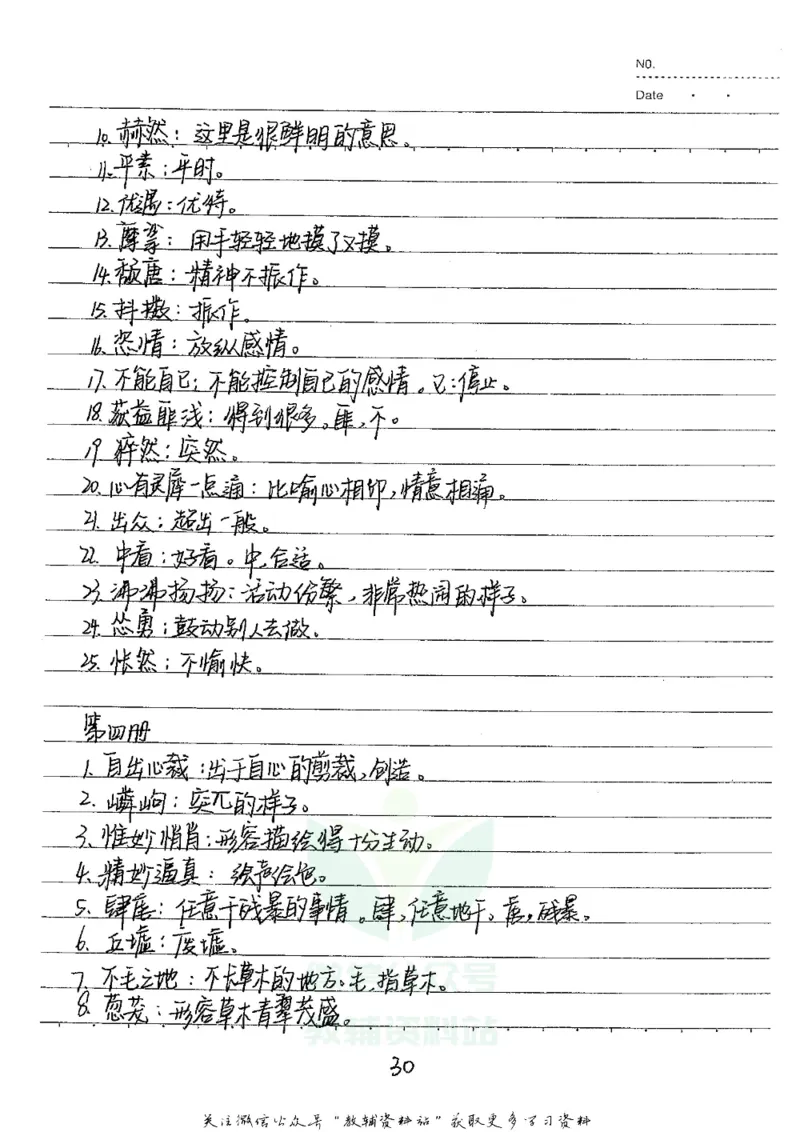 NO.
Date
10. 赫然：这里是很鲜明的意思。
11. 平素：平时。
12. 优渥：优待。
13. 摩挲：用手轻轻地摸了又摸。
14. 颓唐：精神不振作。
15. 抖擞：振作。
16. 恣情：放纵感情。
17. 不能自已：不能控制自己的感情。已：停止。
18. 获益匪浅：得到很多。匪，不。
19. 猝然：突然。
20. 心有灵犀一点通：比喻心相印，情意相通。
21. 出众：超出一般。
22. 中看：好看。中，合适。
23. 沸沸扬扬：活动份繁，非常热闹的样子。
24. 怂勇：鼓动别人去做。
25. 怅然：不愉快。
第四册
1. 自出心裁：出于自心的剪裁，创造。
2. 嶙峋：突兀的样子。
3. 惟妙惟肖：形容描绘得十分生动。
4. 精妙逼真：绘声绘色。
5. 肆虐：任意干残暴的事情。肆，任意地干，虐，残暴。
6. 丘墟：废墟。
7. 不毛之地：不长草木的地方。毛，指草木。
8. 葱茏：形容草木青翠茂盛。
教辅公众号
教辅资料站
30
关注微信公众号“教辅资料站”获取更多学习资料